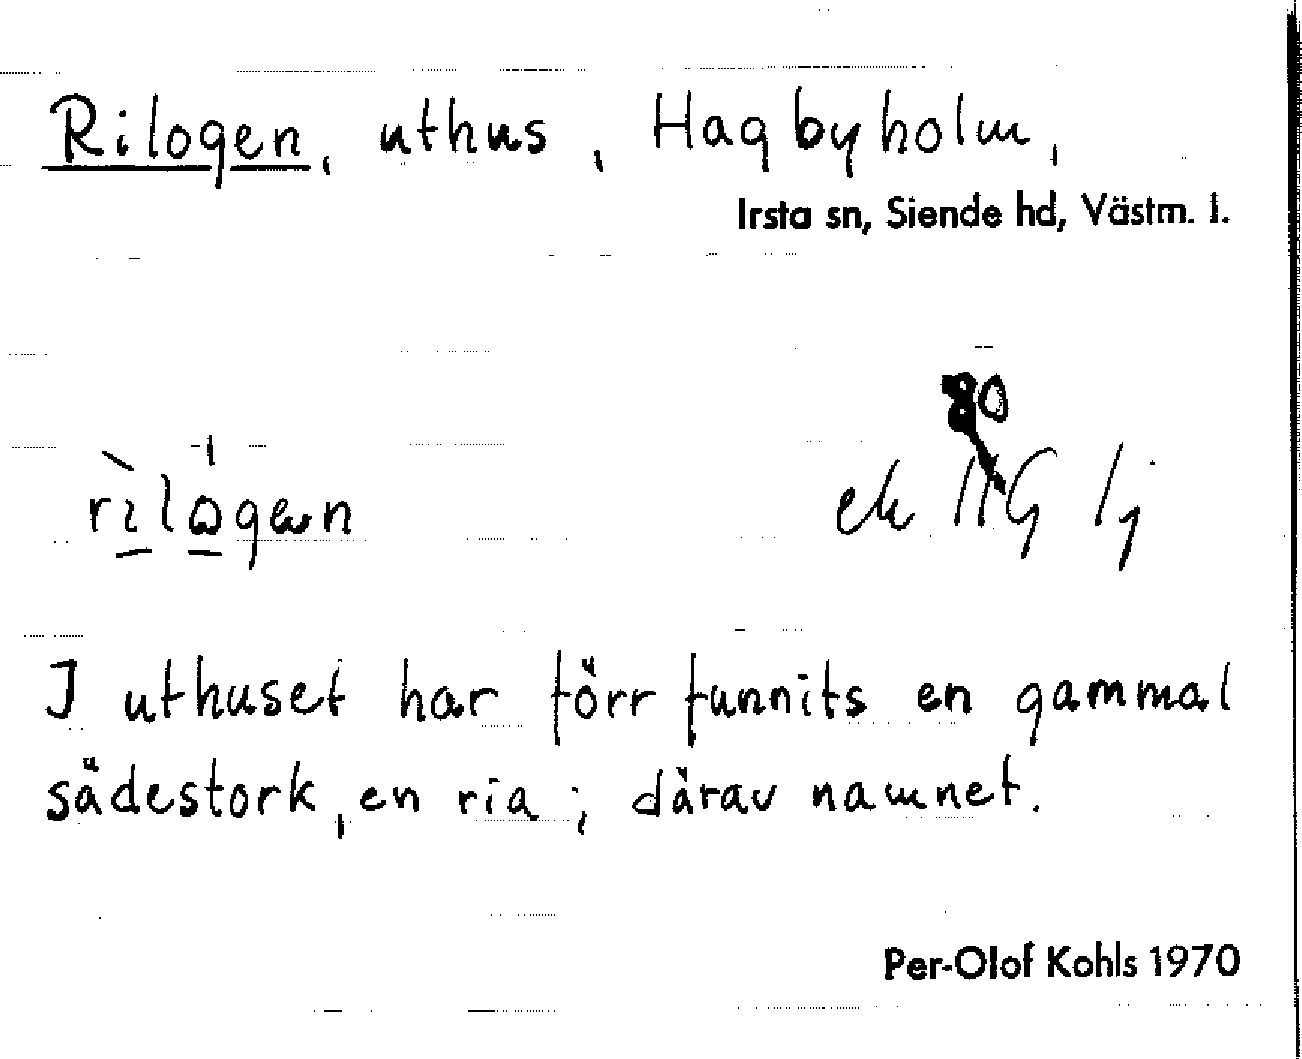 Rilogen, uthus, Hagbyholm,
Irsta sn, Siende hd, Västm. l.
80
ek 11G 1j
I uthuset har förr funnits en gammal
sädestork, en ria; därav namnet.
Per-Olof Kohls 1970